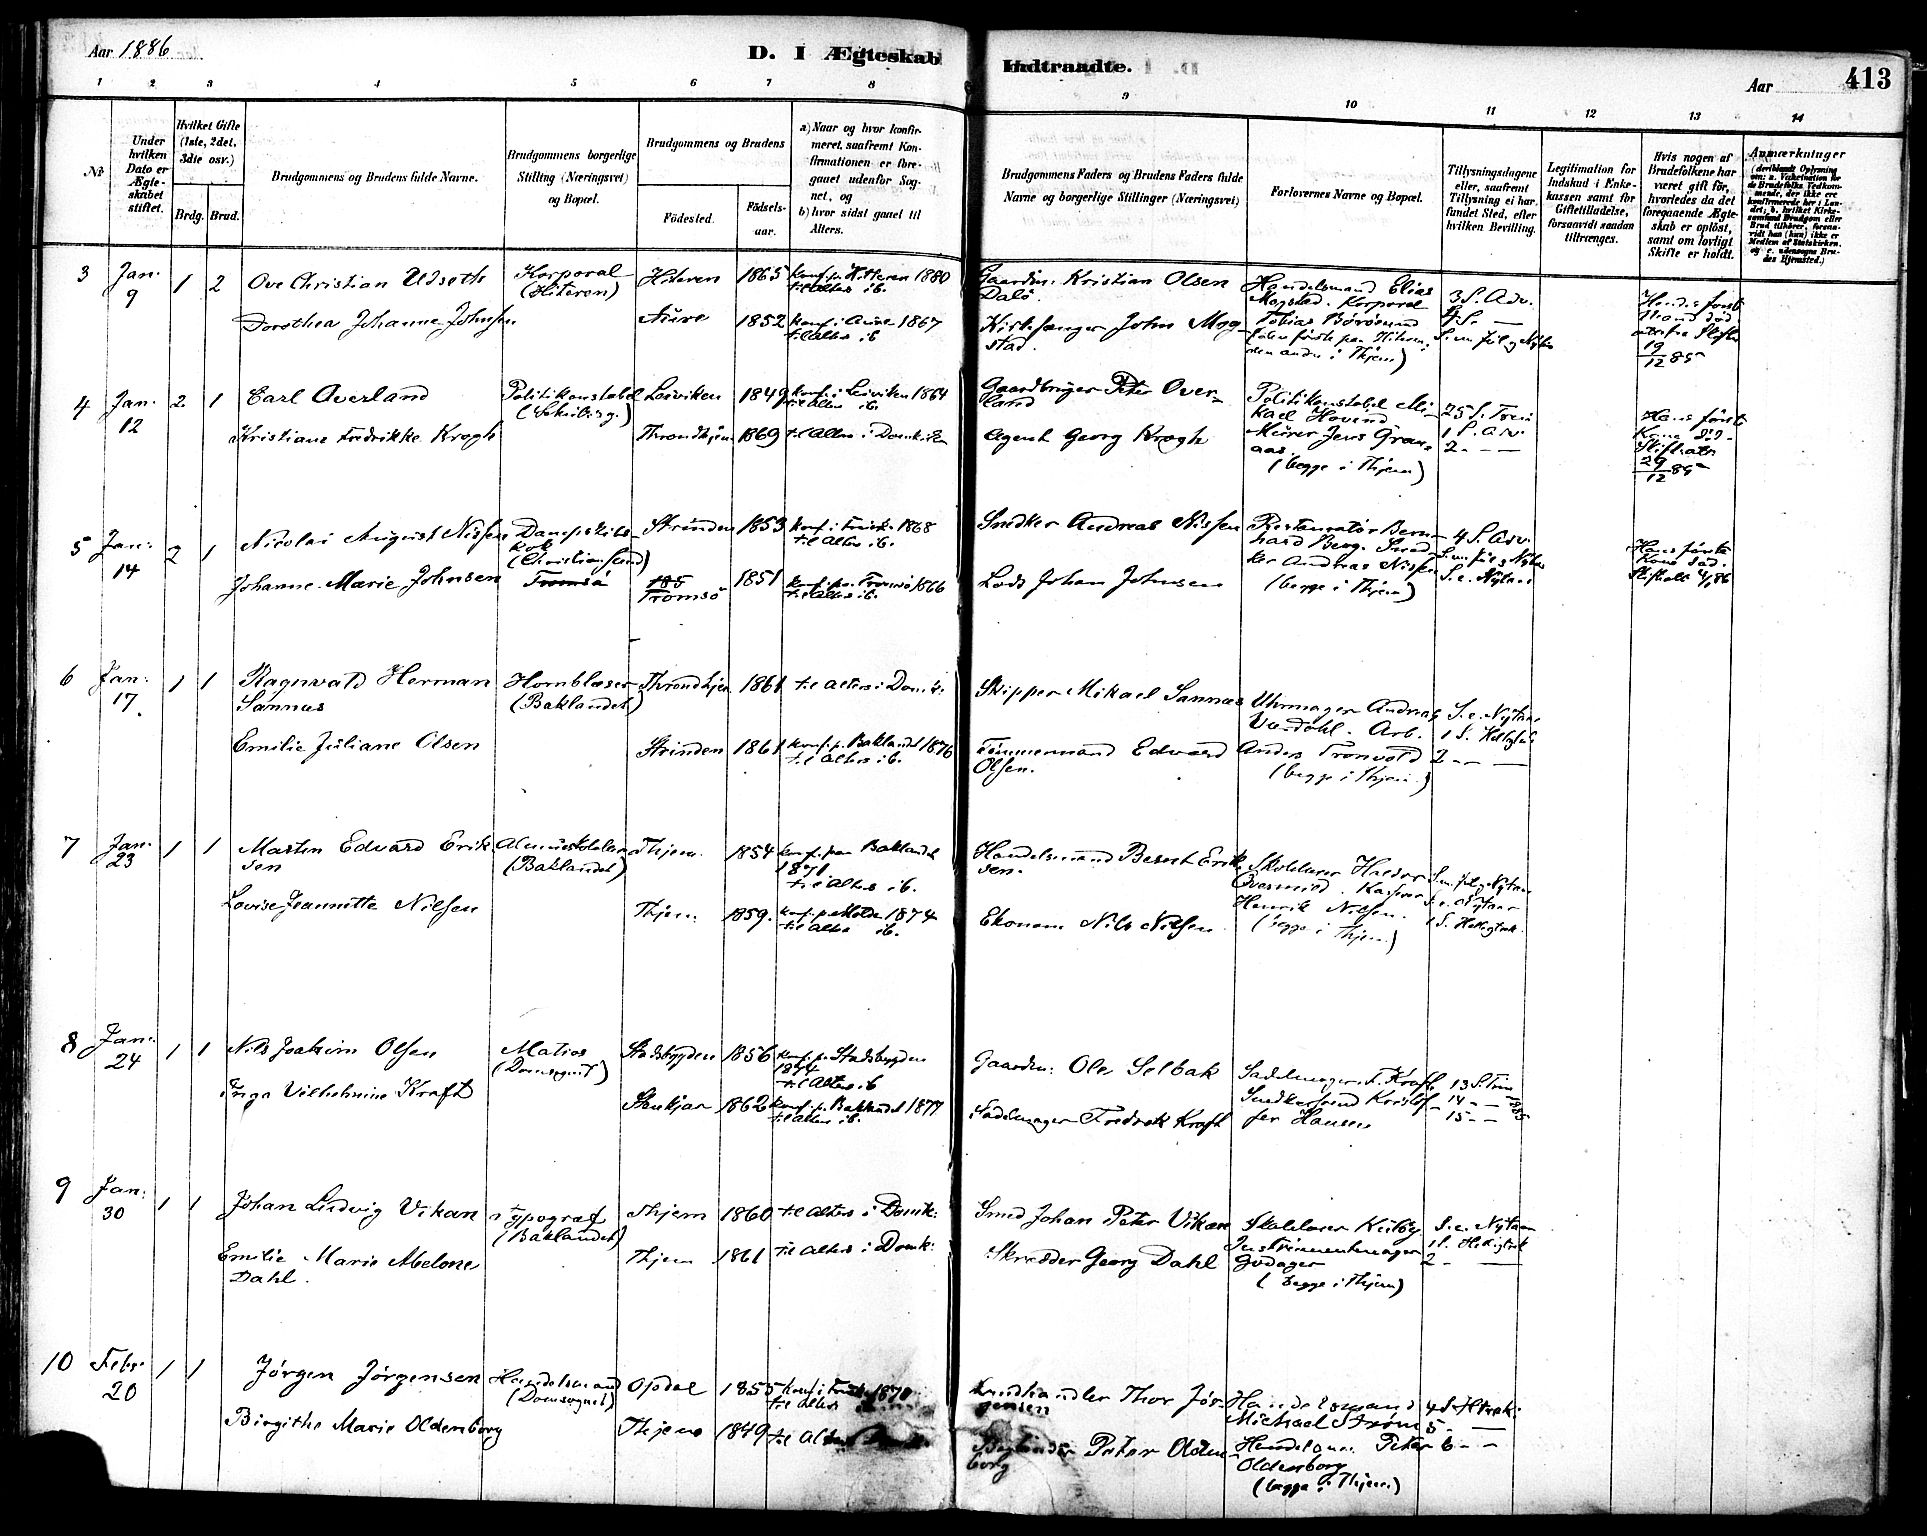 Aar 1886
D. I Ægteskab
Indtraadte.
Aar
413
1 2 3 4 5 6 7 8 9 10 11 12 13 14
No
Under hvilken Dato er Ægteskabet stiftet.
Hvilket Gifte (1ste, 2det, 3die osv.)
Brdg. Brud.
Brudgommens og Brudens fulde Navne.
Brudgommens borgerlige Stilling (Næringsvei) og Bopæl.
Brudgommens og Brudens
Födested.
Födselsaar.
a) Naar og hvor konfirmeret, saafremt Konfirmationen er foregaaet udenfor Sognet, og
b) hvor sidst gaaet til Alters.
Brudgommens Faders og Brudens Faders fulde Navne og borgerlige Stillinger (Næringsvei)
Forlovernes Navne og Bopæl.
Tillysningsdagene eller, saafremt Tillysning ei har fundet Sted, efter hvilken Bevilling.
Legitimation for Indskud i Enkekassen samt for Giftetilladelse, forsaavidt saadan tiltrænges.
Hvis nogen af Brudefolkene har været gift för, hvorledes da det foregaaende Ægteskab er oplöst, samt om lovligt Skifte er holdt.
Anmærkninger
3 Jan. 9 1 2 Ove Christian Udseth Korporal (Hiteren) Hiteren 1865 konf. p. Hitteren 1880 til Alters ib.
Gaardm. Kristian Olsen Dalö. Handelsmand Elias Mogstad. Korporal 3 S. Adv.
Dorothea Johanne Johnsen Aure 1852 konf. i Aure 1867 til Alters ib
Kirkesanger John Mogstad. Tobias Börösund (den förste paa Hiteren, den anden i Thjem) 4 S. —
19/12 85
4 Jan. 12 2 1 Carl Overland Politikonstabel Leviken 1849 konf. i Leviken 1864 til Alters ib.
Gaardbruger Peter Overland Politikonstabel Mikael Hovind 25 S. Trin
Kristiane Fredrikke Krogh Throndhjem 1869 til Alters i Domkirken
Agent Georg Krogh Murer Jens Granaas (begge i Thjem) 1 S. Adv. 2 - —
Hans förste Kone död. 29/12 85
5 Jan. 14 2 1 Nicolai August Nissen Dampskibskok (Christiansund) Strinden 1853 konf. i Frue k. 1868 til Alters ib.
Snedker Andreas Nissen Restauratör Bernhard Berg. Snedker Andreas Nissen (begge i Thjem) 4 S. Adv. S. m. Jul og Nytaar S. e. Nytaar
Johanne Marie Johnsen Tromsö 185 Tromsö 1851 konf. p. Tromsö 1866 til Alters ib.
Lods Johan Johnsen
Hans förste Kone död.
6 Jan. 17 1 1 Ragnvald Herman Sannæs Hornblæser (Baklandet) Throndhjem 1861 til Alters i Domk.
Skipper Mikael Sannæs Uhrmager Andreas Vardahl. Arb. S. e. Nytaar 1 S. Helligtrek
Emilie Juliane Olsen Strinden 1861 konf. p. Baklandet 1876 til Alters ib.
Tömmermand Edvard Olsen. Anders Tronvold (begge i Thjem.) 2 - —
7 Jan. 23 1 1 Martin Edvard Eriksen (Baklandet) Thjem. 1854 konf. paa Baklandet 1871 til Alters ib.
Handelsmand Berent Eriksen. S. m. Jul og Nytaar S. e. Nytaar
Lovise Jeannette Nilsen Thjem. 1859. konf. p. Molde 1874 til Alters ib.
Ekonom Nils Nilsen Henrik Nilsen. (begge i Thjem) 1 S. Helligtrek.
8 Jan. 24 1 1 Nils Joakim Olsen Matros (Domsognet) Stadsbygden 1856 konf. p. Stadsbygden 1874 til Alters ib
Gaardm: Ole Selbak Sadelmager F. Kraft 13 S. Trin
Inga Vilhelmine Kraft Stenkjær 1862 konf. p. Baklandet 1877 til Alters ib.
Sadelmager Fredrik Kraft Snedkersvend Kristoffer Hansen 14 - — 15 - — 1885
9 Jan. 30 1 1 Johan Ludvig Vikan Typograf (Baklandet) Thjem 1860 til Alters i Domk:
Smed Johan Peter Vikan S. e. Nytaar
Emilie Marie Abelone Dahl. Thjem 1861 til Alters i Domk:
Skrædder Georg Dahl Instrumentmager Godager (begge i Thjem) 1 S. Helligtrek 2 - —
10 Febr. 20 1 1 Jörgen Jörgensen Handelsmand (Domsognet) Opdal 1855 konf. i Frue k. 1870 til Alters
Thor Jörgensen Handelsmand Michael Ström 4 S. H trek: 5 —
Birgithe Marie Oldenborg Thjem 1849 til Alters
Peter Oldenborg Handelsm. Peter Oldenborg (begge i Thjem) 6 - —